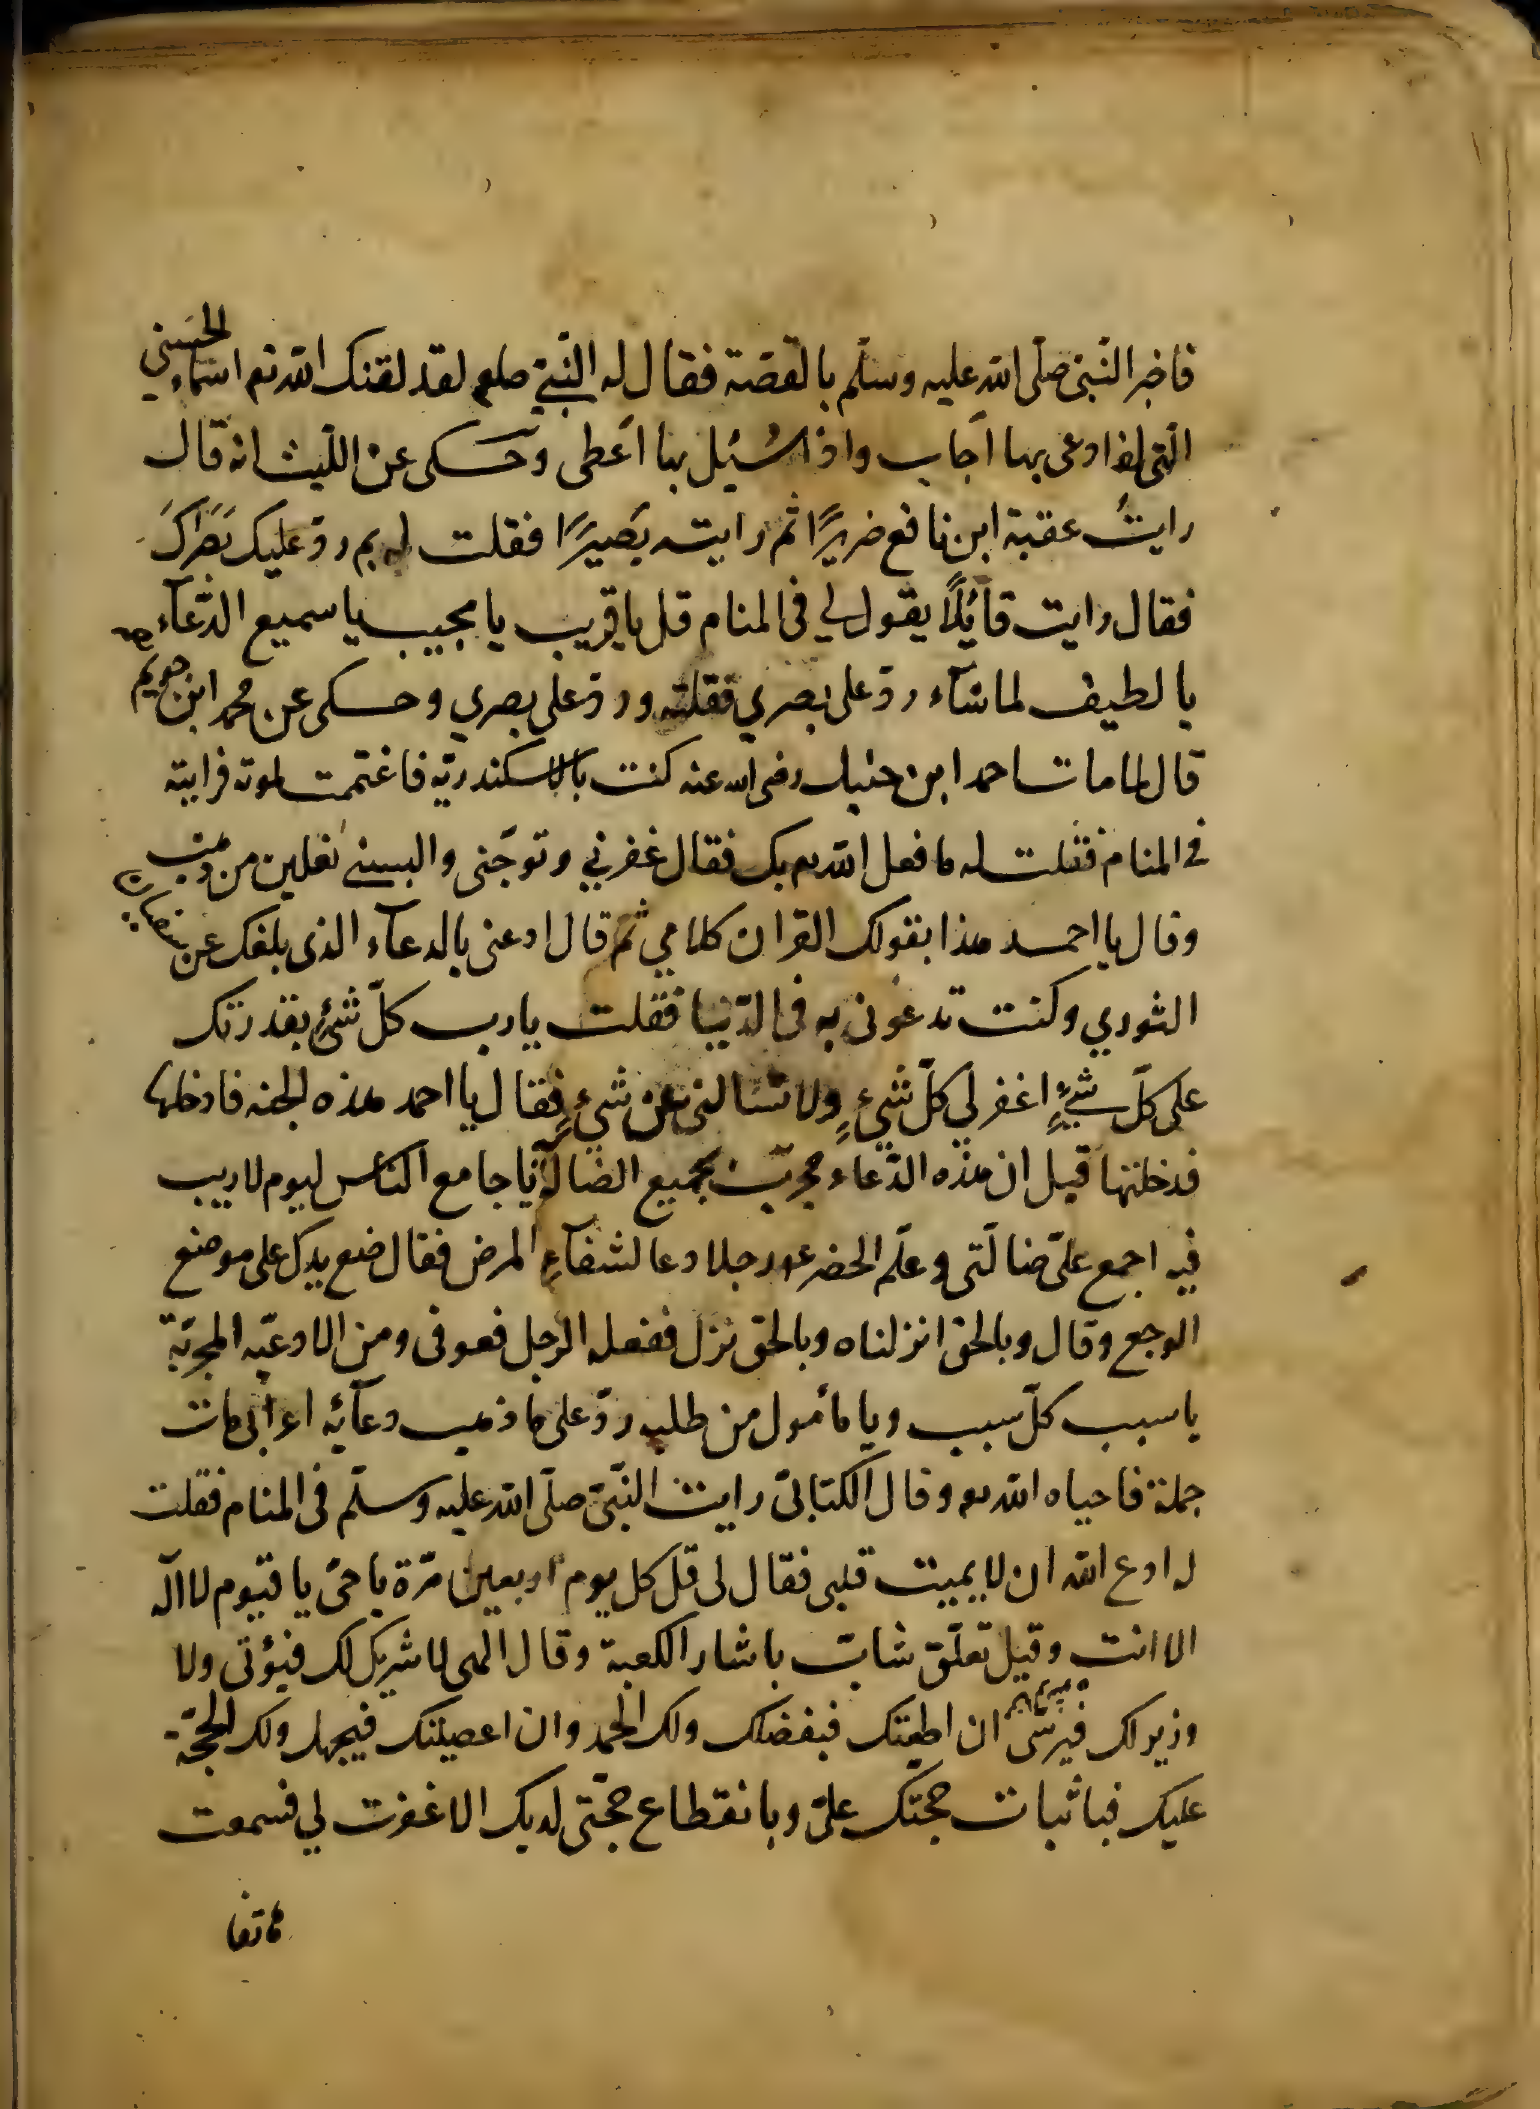 فاخبر النّبيّ صلّى الله عليه وسلّم بالقصّة فقال له النّبيّ صلعم لقد لقنك الله تع اسماءه الحسنى
الّتي اذا دعى بها اجاب واذا سُئِل بها اَعطى وَحكى عن اللّيث انه قال
رايتُ عقبة ابن نافع ضريرًا ثم رايته بَصيرًا فقلت له بم ردّ عليك بَصَرَكَ
فقال رايت قآئِلًا يقول لي في المنام قل يا قريب يا مجيب يا سميع الدّعآء
يا لطيف لما شآء ردّ على بصري فقلته وردّ على بصري وحكى عن محمد ابن
قال لما مات احمد ابن حنبل رضى الله عنه كنت بالاسكندريّه فاغتممت لموته فرايته
في المنام فقلت له ما فعل الله بك فقال غفرني وتوجّنى والبسنى نعلين من ذهب
وقال يا احمد هذا بقولك القران كلامي ثم قال ادعنى بالدعآء الذى بلغك عن سفيان
الثوري وكنت تدعونى به في الدّنيا فقلت يا رب كلّ شئٍ بقدرتك
على كلّ شئٍ اغفر لي كلّ شئٍ ولا تسَالنى عن شئٍ فقال يا احمد هذه الجنه فادخلها
فدخلتها قيل ان هذه الدّعاء مجرّب بجميع الضالّة يا جامع الناس ليوم لا ريب
فيه اجمع علىّ ضالّتى وعلّم الخضر عم رجلا دعا لشفآءِ المرض فقال ضع يدك على موضع
الوجع وقال وبالحق انزلناه وبالحق نزل ففعله الرّجل فعوفى ومن الادعيّه المجرّبة
يا سبب كلّ سبب ويا مأمول من طلبه ردّ على ما ذهب دعآئه اعرابى مات
جمله فاحياه الله وقال الكتانىّ رايت النّبىّ صلّى الله عليه وسلّم فى المنام فقلت
له ادع الله ان لا يميت قلبى فقال لى قل كل يوم اربعين مّرة يا حىّ يا قيّوم لا اله
الا انت وقيل تعلّق شابّ باستار الكعبة وقال الهى لا شريك لك فيؤتى ولا
وزير لك فيرشى ان اطعتك فبفضلك ولك الحمد وان اعصيتك فبجهل ولك الحجّة
عليك فباثبات حجتك علىّ وبانقطاع حجّتى لديك الا غفرت لي فسمعت
هاتفا